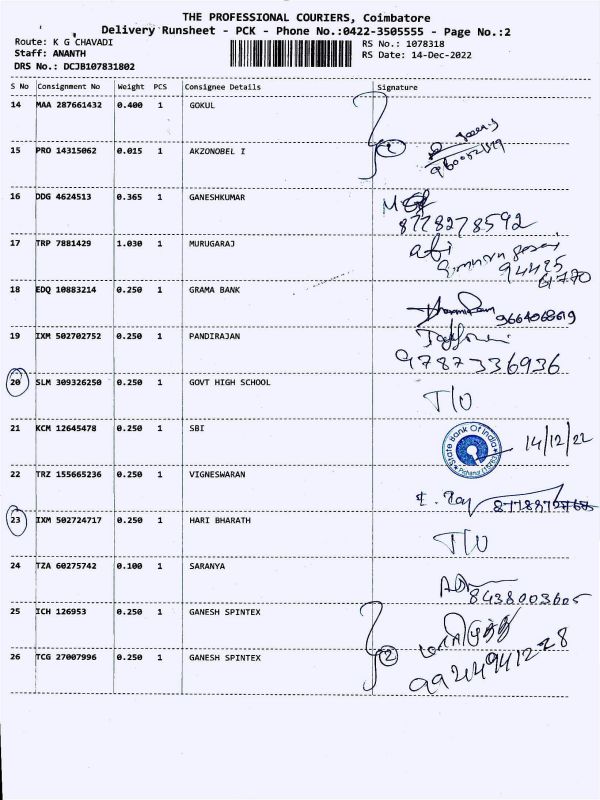 THE PROFESSIONAL COURIERS, Coimbatore
Delivery Runsheet - PCK - Phone No.:0422-3505555 - Page No.:2
Route: K G CHAVADI
RS No.: 1078318
Staff: ANANTH
RS Date: 14-Dec-2022
DRS No.: DCJB107831802
S No Consignment No Weight PCS Consignee Details Signature
14 MAA 287661432 0.400 1 GOKUL
2
15 PRO 14315062 0.015 1 AKZONOBEL I
16 DDG 4624513 0.365 1 GANESHKUMAR
8778278592
17 TRP 7881429 1.030 1 MURUGARAJ
94425
18 EDQ 10883214 0.250 1 GRAMA BANK
9664068619
19 IXM 502702752 0.250 1 PANDIRAJAN
9787336936
20 SLM 309326250 0.250 1 GOVT HIGH SCHOOL T/O
21 KCM 12645478 0.250 1 SBI
State Bank Of India
14/12/22
22 TRZ 155665236 0.250 1 VIGNESWARAN
23 IXM 502724717 0.250 1 HARI BHARATH T/O
24 TZA 60275742 0.100 1 SARANYA
8438003605
25 ICH 126953 0.250 1 GANESH SPINTEX
2
26 TCG 27007996 0.250 1 GANESH SPINTEX
9944941228